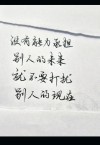 没有能力承担
别人的未来
就不要打扰
别人的现在